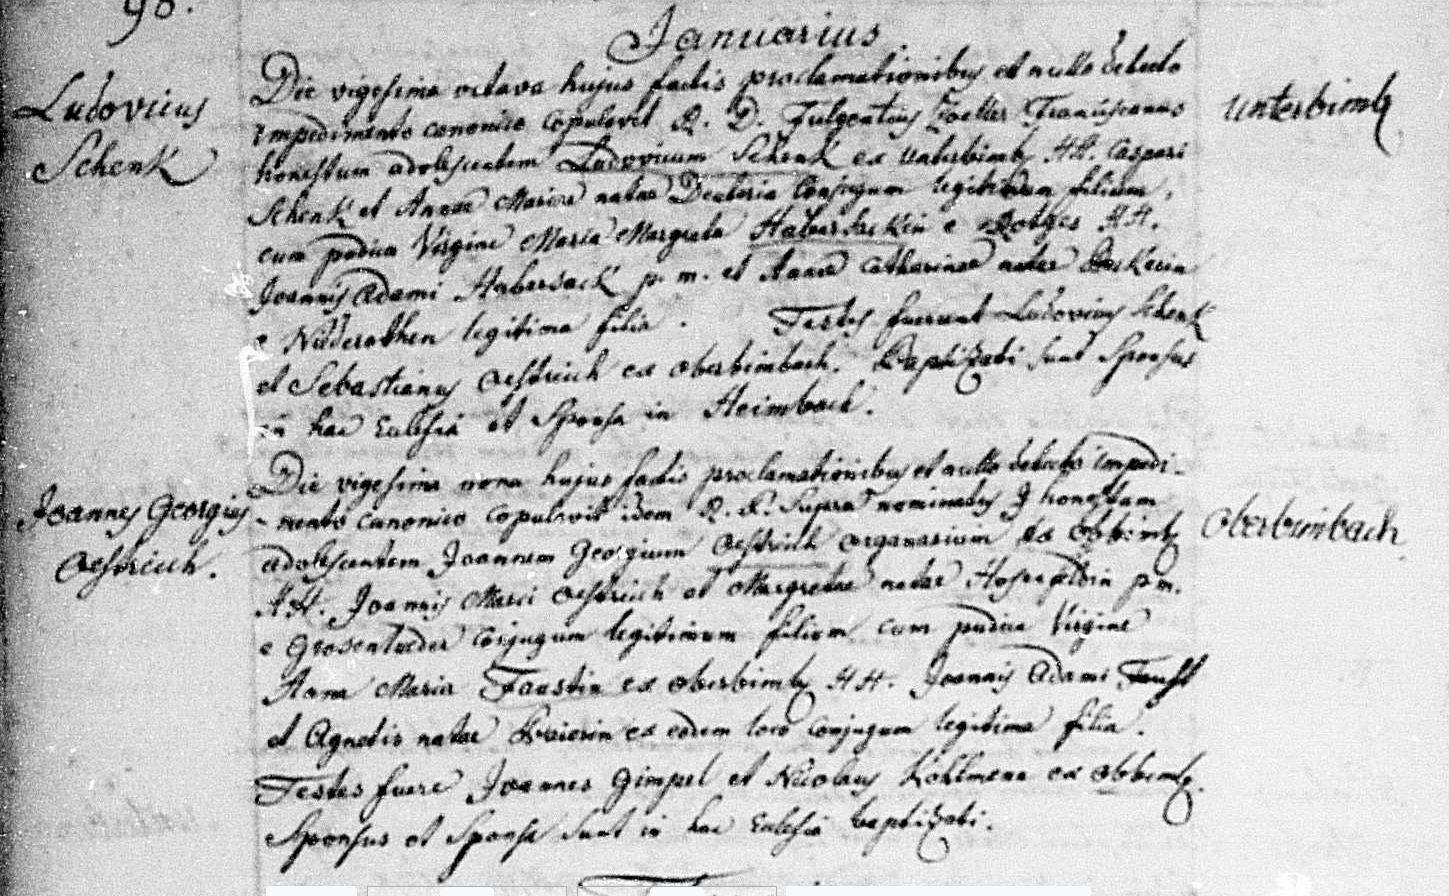 98.
Januarius
Ludovicus
Schenk
Die vigesima octava hujus factis proclamationibus et nullo detecto
impedimento canonico copulavit R. D. Fulgentius Zoeller Franciscanus
honestum adolescentem Ludovicum Schenk ex Unterbimb HH. Caspari
Schenk et Annae Mariae natae conjugum legitimum filium,
cum pudica Virgine Maria Margreta Habersakin e HH.
Joannis Adami Habersack p. m. et Annae Catharinae natae
e legitima filia. Testes fuerunt Ludovicus Schenk
et Sebastianus Oestreich ex Oberbimbach. Baptizati sunt Sponsus
in hac Eclesia et Sponsa in Heimbach.
Unterbimb
Joannes Georgius
Oestreich.
Die vigesima nona hujus factis proclamationibus et nullo detecto impedi-
mento canonico copulavit idem R. P. supra nominatus honestum
adolescentem Joannem Georgium Oestreich ex Obbimb
HH. Joannis Marci Oestreich et Margretae natae p m.
e Grosenlueder conjugum legitimum filium cum pudica Virgine
Anna Maria Faustin ex Oberbimb HH. Joannis Adami Faust
et Agnetis natae ex eodem loco conjugum legitima filia.
Testes fuere Joannes Gimpel et Nicolaus ex Obbimb.
Sponsus et Sponsa sunt in hac Eclesia baptizati.
Oberbimbach